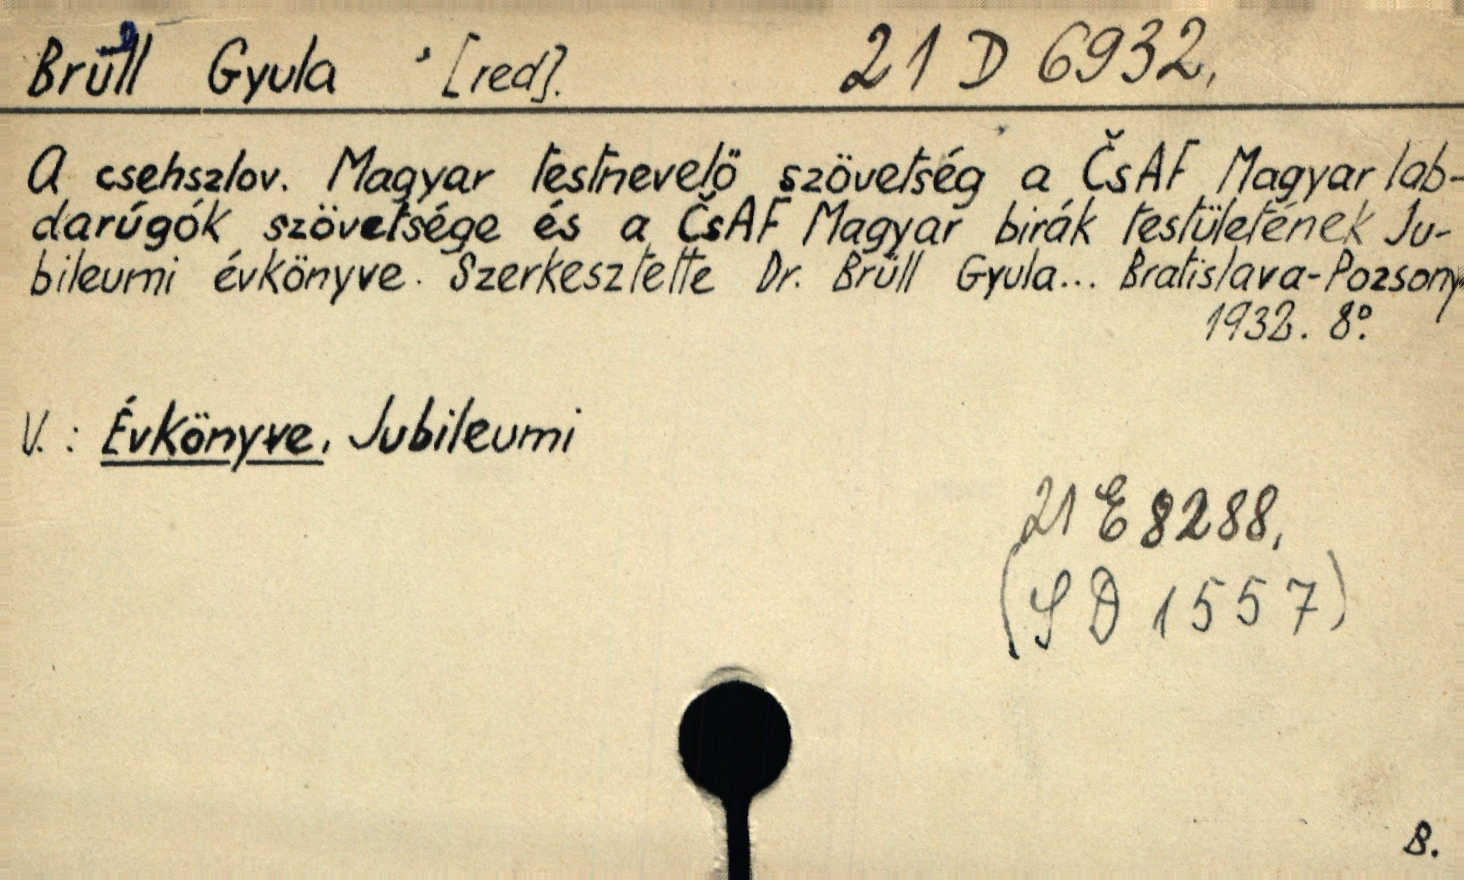 Brüll Gyula [red]. 21 D 6932.
A csehszlov. Magyar testnevelő szövetség a ČsAF Magyar lab-
darúgók szövetsége és a ČsAF Magyar birák testületének Ju-
bileumi évkönyve. Szerkesztette Dr. Brüll Gyula... Bratislava-Pozsony
1932. 8°.
V. : Évkönyve, Jubileumi
21 E 8288,
(SD 1557)
B.